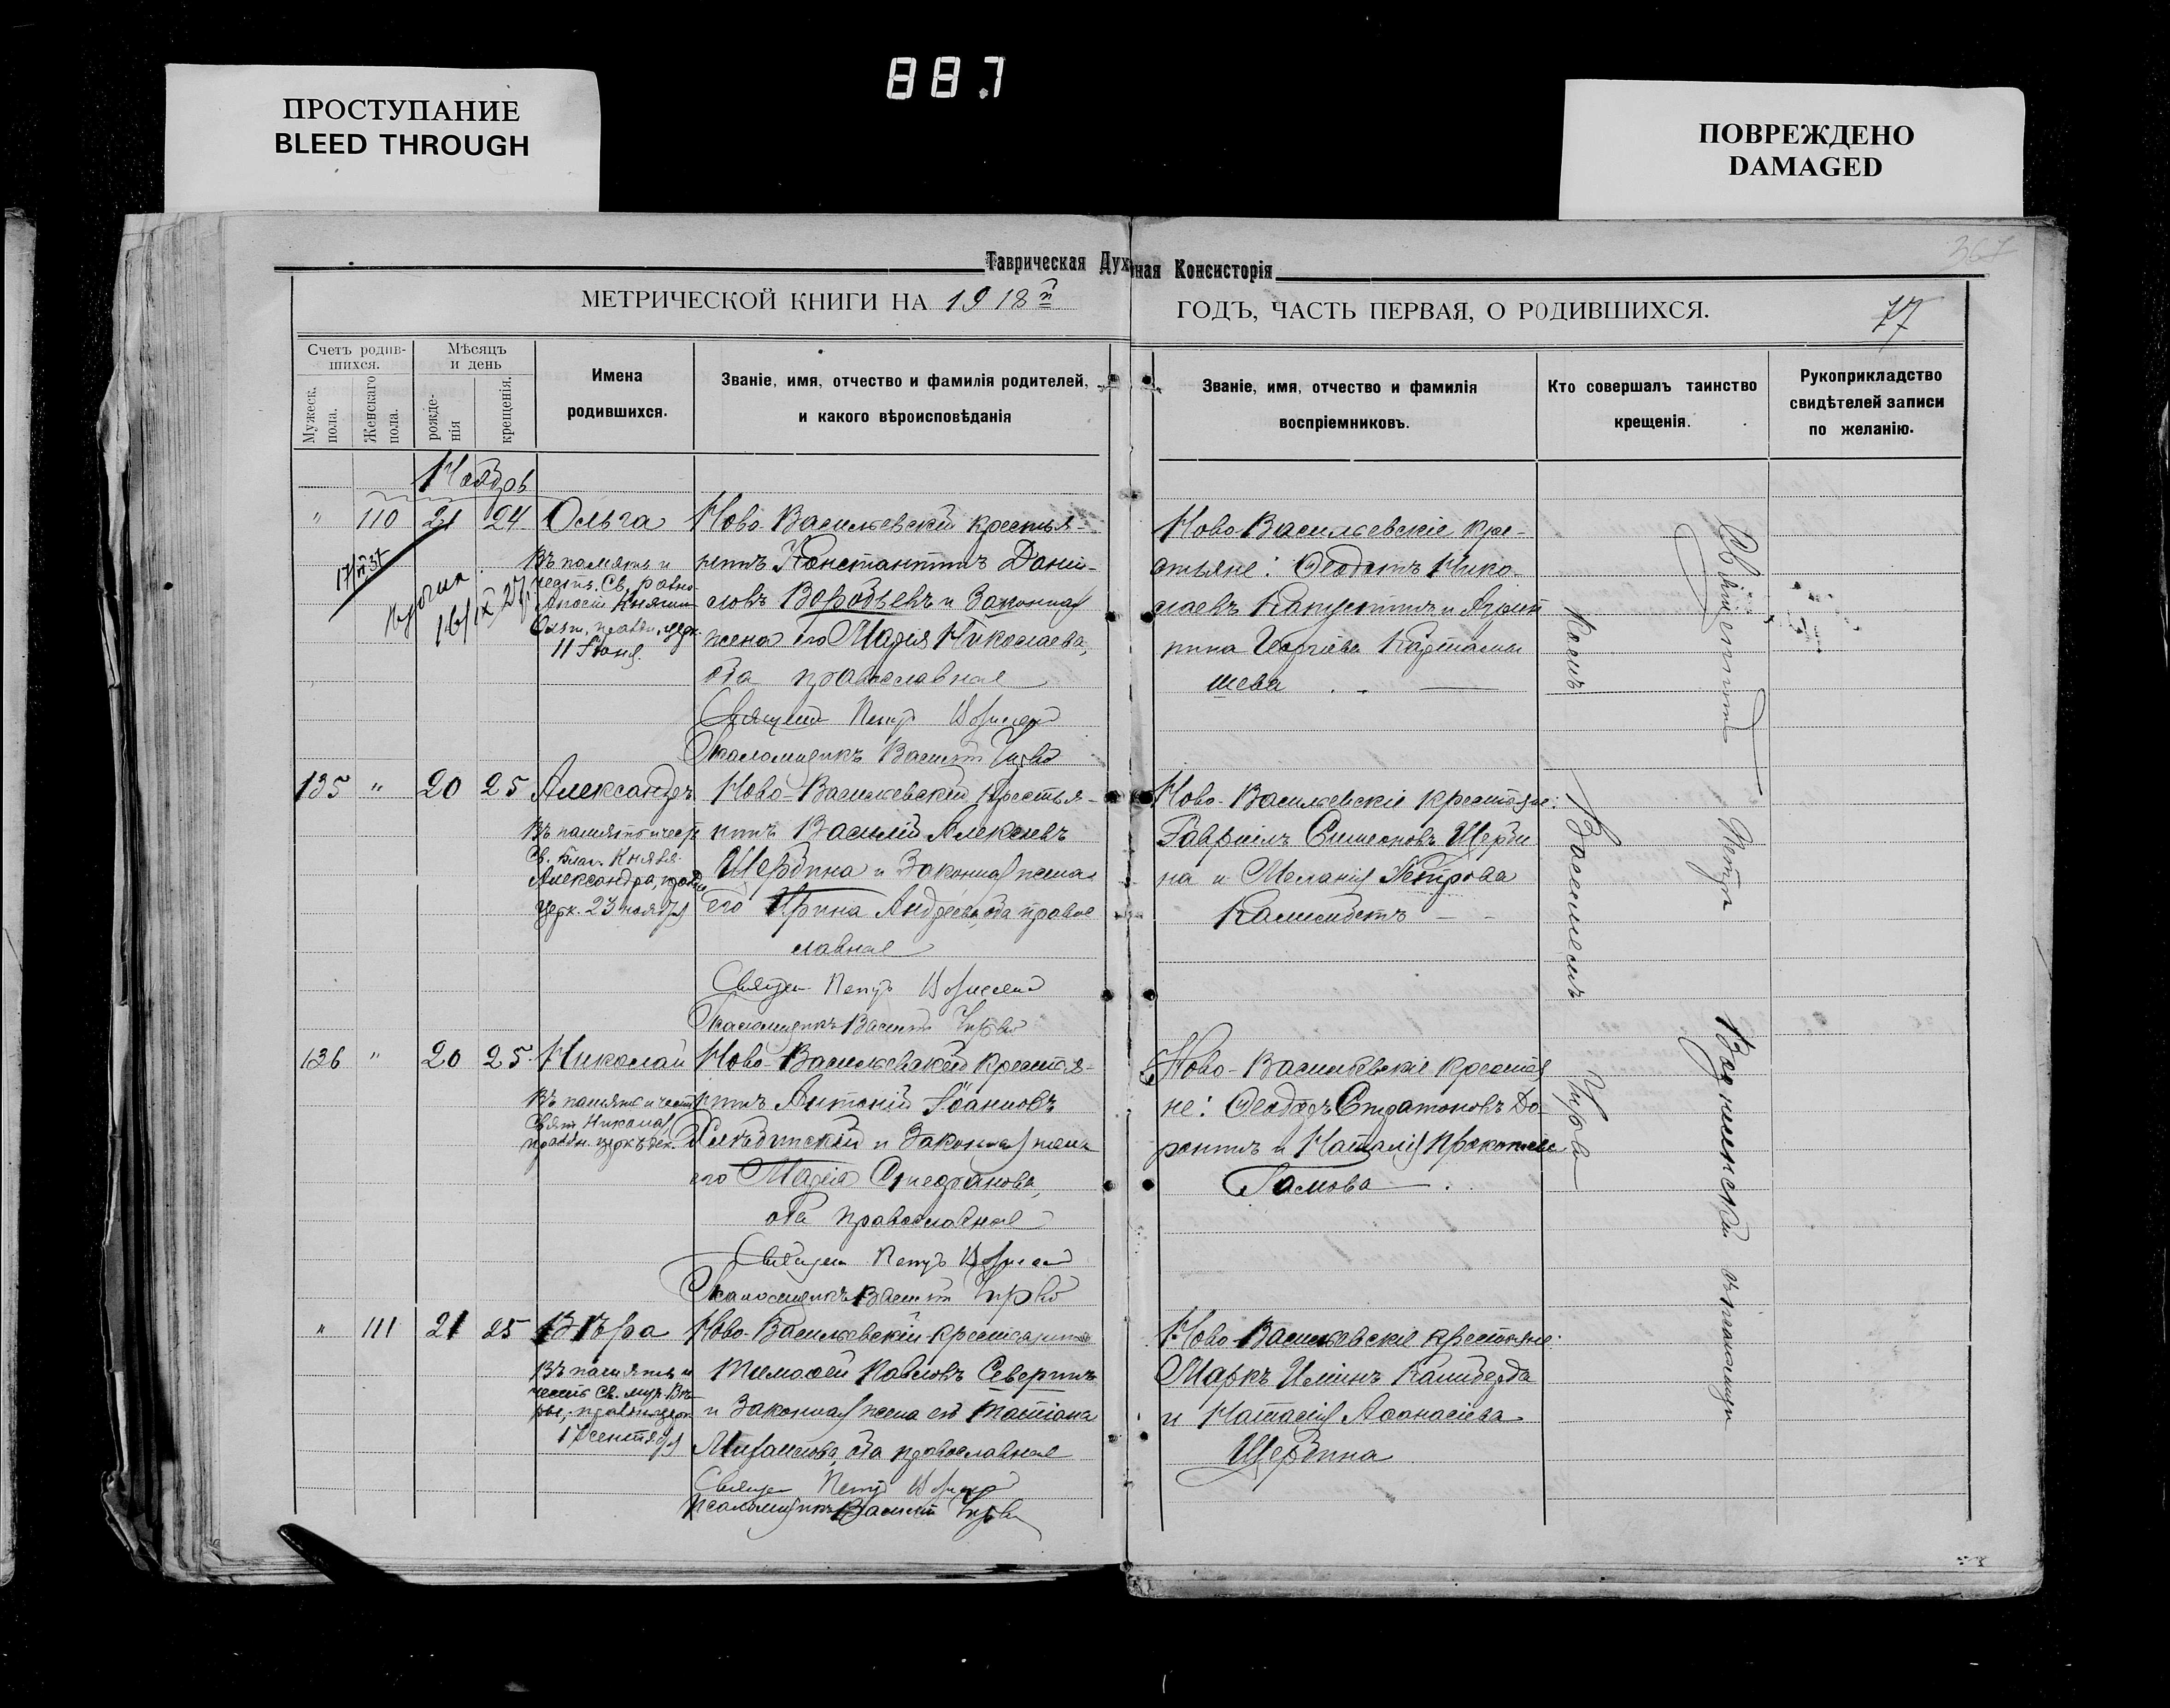 887
ПРОСТУПАНИЕ
BLEED THROUGH
ПОВРЕЖДЕНО
DAMAGED
Таврическая Духовная Консисторія
367
МЕТРИЧЕСКОЙ КНИГИ НА 1918й
ГОДЪ, ЧАСТЬ ПЕРВАЯ, О РОДИВШИХСЯ.
77
Счетъ родив-
шихся.
Мужеск.
пола.
Женскаго
пола.
Мѣсяцъ
и день
рожде-
нія
крещенія.
Имена
родившихся.
Званіе, имя, отчество и фамилія родителей,
и какого вѣроисповѣданія
Званіе, имя, отчество и фамилія
воспріемниковъ.
Кто совершалъ таинство
крещенія.
Рукоприкладство
свидѣтелей записи
по желанію.
Ноябрь
" 110 21 24 Ольга
Въ память и
честь Св. равно-
Апост. Княгин.
Ольги, праздн. церк.
11 Іюля.
Ново-Васильевскій крестья-
нинъ Константинъ Дани-
ловъ Воробьевъ и Законная
жена его Марія Николаева,
оба православные
Священ. Петръ
Псаломщикъ Василій
Ново-Васильевскіе кре-
стьяне: Ѳеодотъ Нико-
лаевъ Капустинъ и
шева
135 " 20 25 Александръ
Въ память и честь
Св. Благ. Князя
Александра, праздн.
церк. 23 ноября
Ново-Васильевскій крестья-
нинъ Василій Алексѣевъ
Щербина и Законная жена
его Ирина Андреева, оба право-
славные
Священ. Петръ
Псаломщикъ Василій
Ново-Васильевскіе крестьяне:
Гавріилъ Симеоновъ Щерби-
на и Меланія Петрова
136 " 20 25 Николай
Въ память и честь
Свят. Николая
праздн. церк. 6 дек.
Ново-Васильевскій крестья-
нинъ Антоній Іоанновъ
и Законная жена
его Марія Стефанова,
оба православные
Священ. Петръ
Псаломщикъ Василій
Ново-Васильевскіе крестья-
не: Ѳеодоръ Стратоновъ До-
ронинъ и Наталія Прокопіева
Гамова
" 111 21 25 Вѣра
Въ память и
честь Св. муч. Вѣ-
ры, праздн. церк.
17 сентября
Ново-Васильевскій крестьянинъ
Тимоѳей Павловъ Северинъ
и Законная жена его Татіана
Михаилова, оба православные
Священ. Петръ
Псаломщикъ Василій
Ново-Васильевскіе крестьяне:
Маркъ Ильинъ
и Наталія Аѳанасіева
Щербина
Священникъ Петръ
съ псаломщи-
комъ Василіемъ